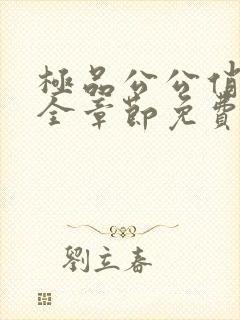 極品公公俏
全章節免費
劉立春